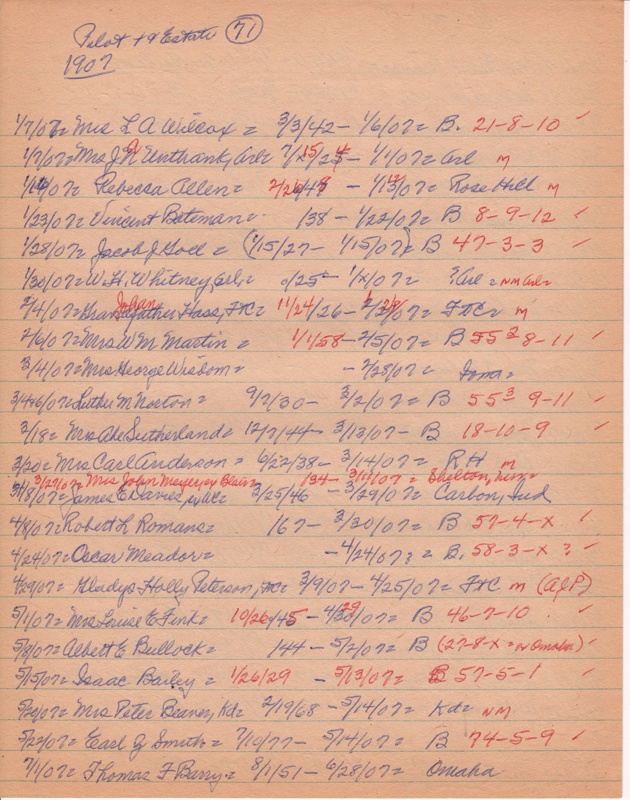 Pilot + Estate (71)
1907
1/7/07= Mrs L A Wilcox = 3/3/42- 1/6/07= B. 21-8-10 ✓
1/7/07= Mrs J R Unthank, Arl= 7/15/25 - 1/1/07= Arl m
1/14/07= Rebecca Allen= 2/26/49 - 1/13/07= Rose Hill m
1/23/07= Vincent Bateman= 138 - 1/22/07= B 8-9-12 ✓
1/28/07= Jacob J Goll = (1/15/27- 1/15/07) = B 47-3-3 ✓
1/30/07= W. H. Whitney Arl,= 0/25- 1/x/07= ? Arl = NM Arl=
2/4/07= Grandfather Johan Hass, FtC= 11/24/26 - 1/28/07= FtC= m
2/6/07= Mrs W M Martin = 1/1/58 - 2/5/07= B 55³ 8-11 ✓
3/4/07= Mrs George Wisdom = - 2/28/07= Iowa=
3/4+6/07= Luther M Norton= 9/2/30- 3/2/07= B 55³ 9-11 ✓
3/18= Mrs Abe Sutherland= 12/7/44- 3/13/07- B 18-10-9 ✓
3/20= Mrs Carl Anderson = 6/22/38- 3/14/07= R H m
3/27/07= Mrs John Blair= 134- 3/11/07= Shelton,
3/18/07= James E Davies, 3/25/46 - 3/29/07= Carbon, Ind
4/8/07= Robert L Romans= 167 - 3/30/07= B 57-4-x ✓
4/24/07= Oscar Meador= -4/24/07? = B. 58-3-x ? ✓
4/29/07= Gladys Holly Peterson, FtC= 3/9/07- 4/25/07= FtC m (A&P)
5/1/07= Mrs Louise E Fink= 10/26/45 - 4/29/07= B 46-7-10 ✓
5/8/07= Albert E Bullock= 144 - 5/2/07= B (27-8-x = or Omaha) ✓
5/15/07= Isaac Bailey = 1/26/29 - 5/13/07= B 57-5-1 ✓
5/20/07= Mrs Peter Beaver, Kd= 2/19/68 - 5/14/07= Kd= NM
5/22/07= Earl J Smith= 7/10/77- 5/14/07= B 74-5-9 ✓
7/1/07= Thomas F Barry= 8/1/51 - 6/28/07= Omaha